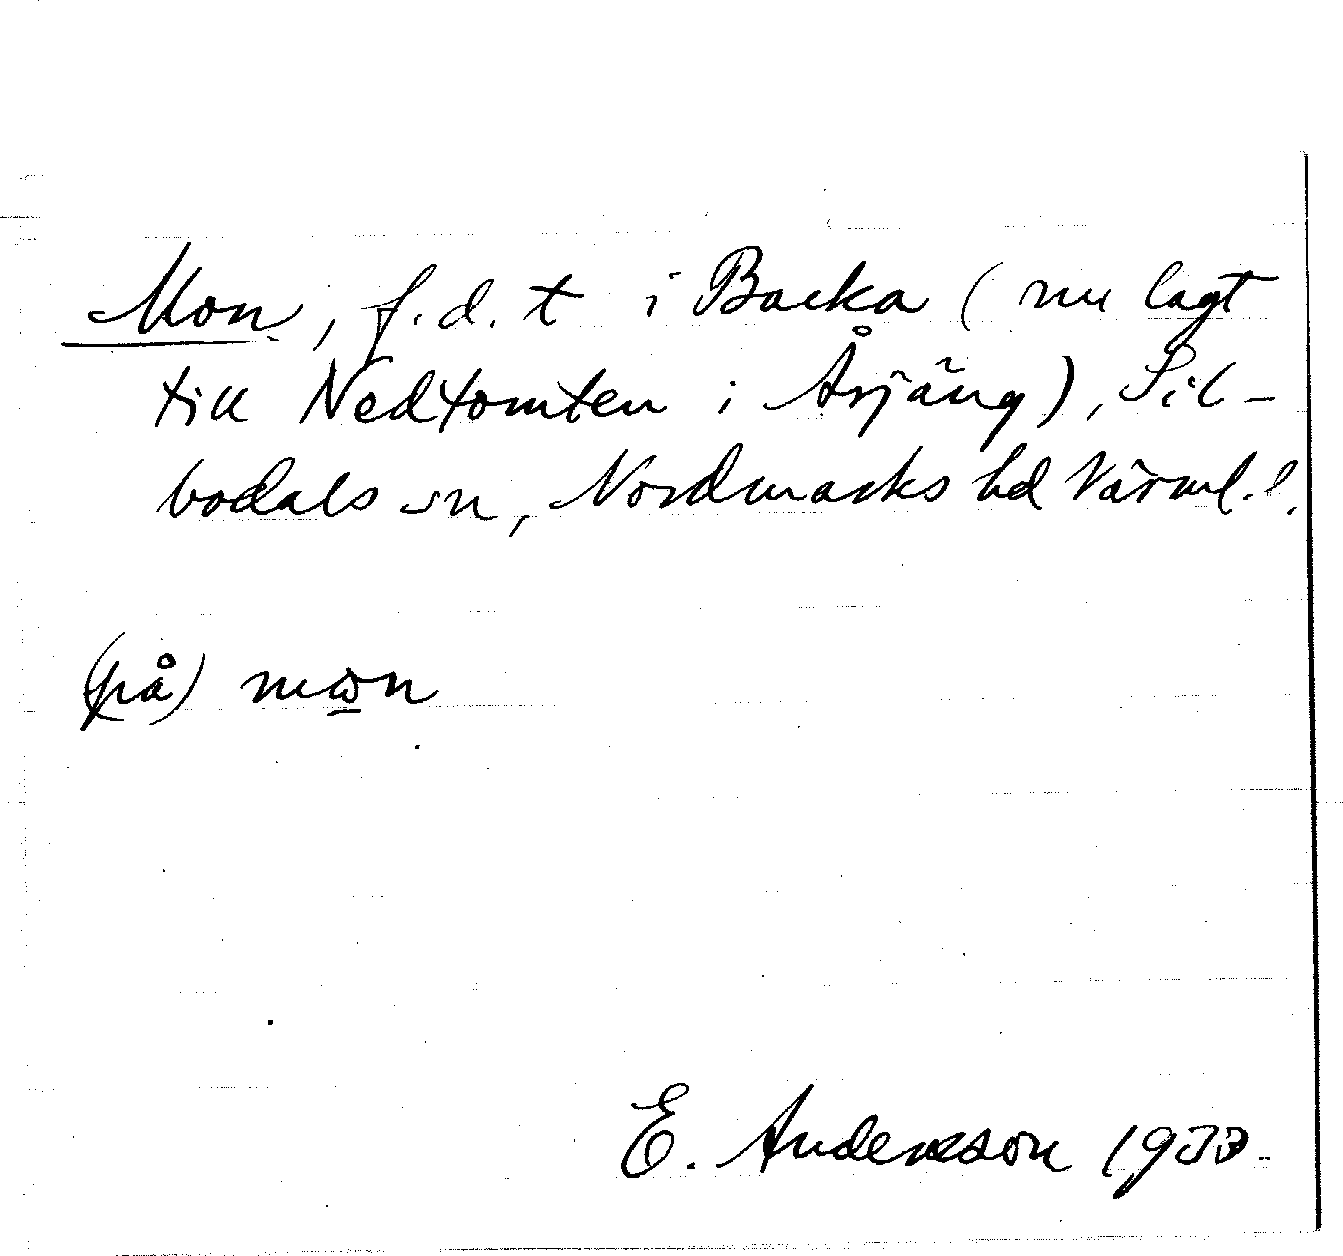 Mon, f.d. t i Backa (nu lagt
till Nedtomten i Årjäng), Sil-
bodals sn, Nordmarks hd Värml. l.
(på) mωn
E. Andersson 1933.